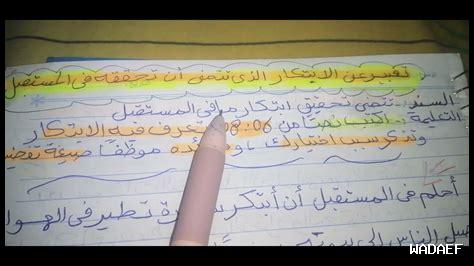 تعبير عن الابتكار الذي تتمنى أن تحققه في المستقبل
السند: تتمنى تحقيق ابتكار ما في المستقبل
التعليمة: اكتب نصا من 06 تعرف فيه الابتكار
وتذكر سبب اختيارك له، و موظفا صيغة
أحلم في المستقبل أن أبتكر تطير في الهوا
الناس إلى
WADAEF